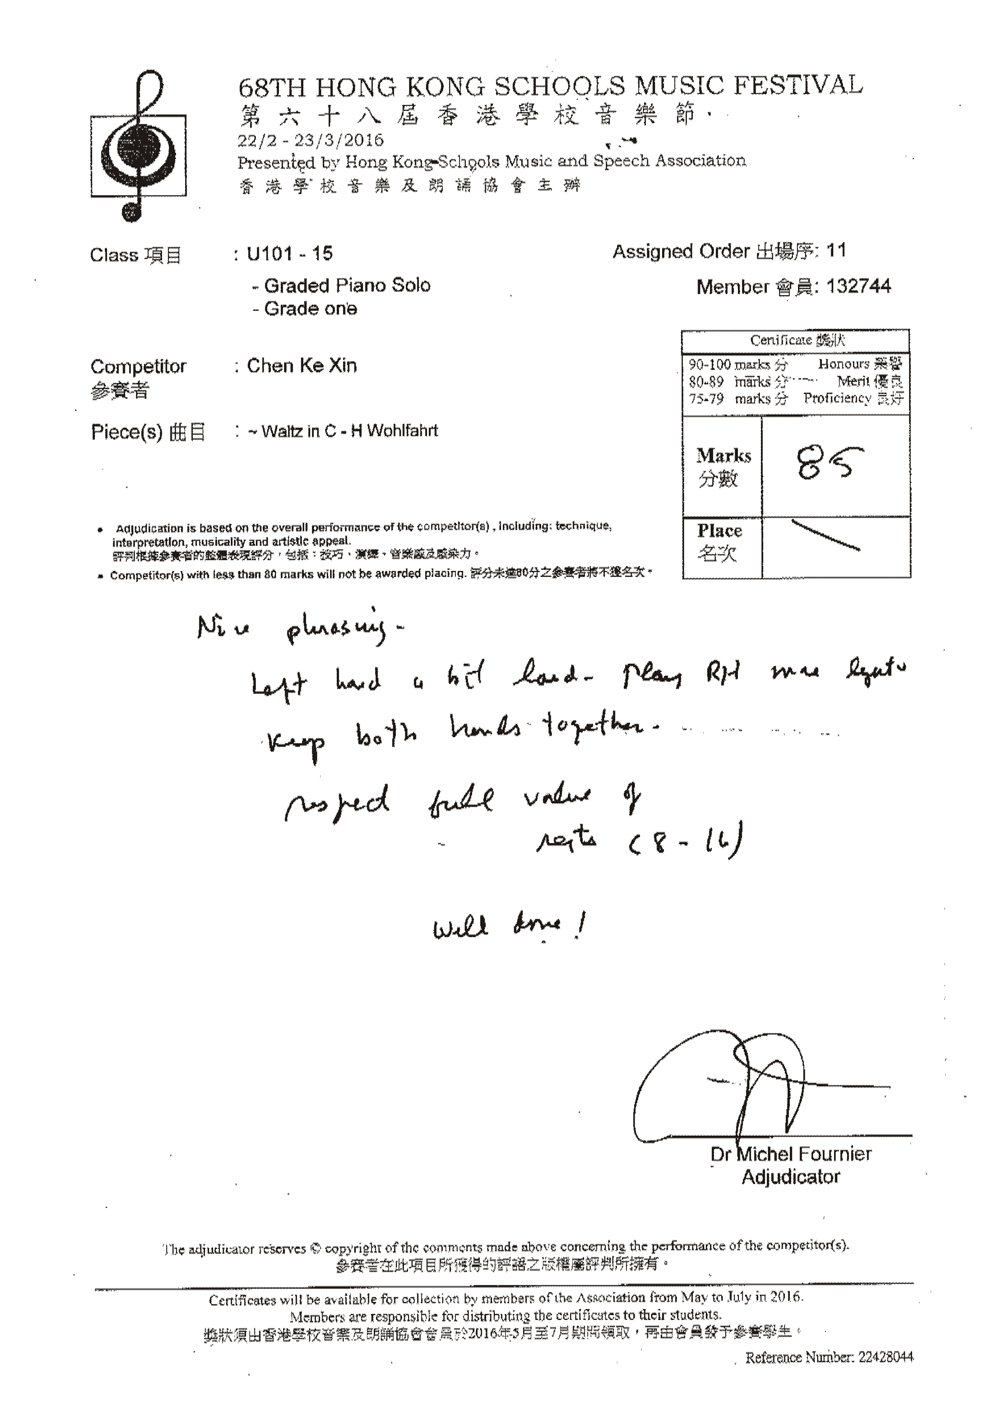 68TH HONG KONG SCHOOLS MUSIC FESTIVAL
第六十八屆香港學校音樂節
22/2 - 23/3/2016
Presented by Hong Kong Schools Music and Speech Association
香港學校音樂及朗誦協會主辦
Class 項目 : U101 - 15
Assigned Order 出場序: 11
- Graded Piano Solo
Member 會員: 132744
- Grade one
Certificate 獎狀
90-100 marks 分 Honours 榮譽
80-89 marks 分 Merit 優良
75-79 marks 分 Proficiency 良好
Competitor : Chen Ke Xin
參賽者
Piece(s) 曲目 : ~ Waltz in C - H Wohlfahrt
Marks 85
分數
Place
名次
• Adjudication is based on the overall performance of the competitor(s) , including: technique,
interpretation, musicality and artistic appeal.
評判根據參賽者的整體表現評分，包括：技巧、演繹、音樂感及感染力。
• Competitor(s) with less than 80 marks will not be awarded placing. 評分未達80分之參賽者將不獲名次。
Nice phrasing -
Left hand a bit loud - Play RH more legato
Keep both hands together -
respect full value of
rests (8 - 16)
Well done !
Dr Michel Fournier
Adjudicator
The adjudicator reserves © copyright of the comments made above concerning the performance of the competitor(s).
參賽者在此項目所獲得的評語之版權屬評判所擁有。
Certificates will be available for collection by members of the Association from May to July in 2016.
Members are responsible for distributing the certificates to their students.
獎狀須由香港學校音樂及朗誦協會會員於2016年5月至7月期間領取，再由會員發予參賽學生。
Reference Number: 22428044